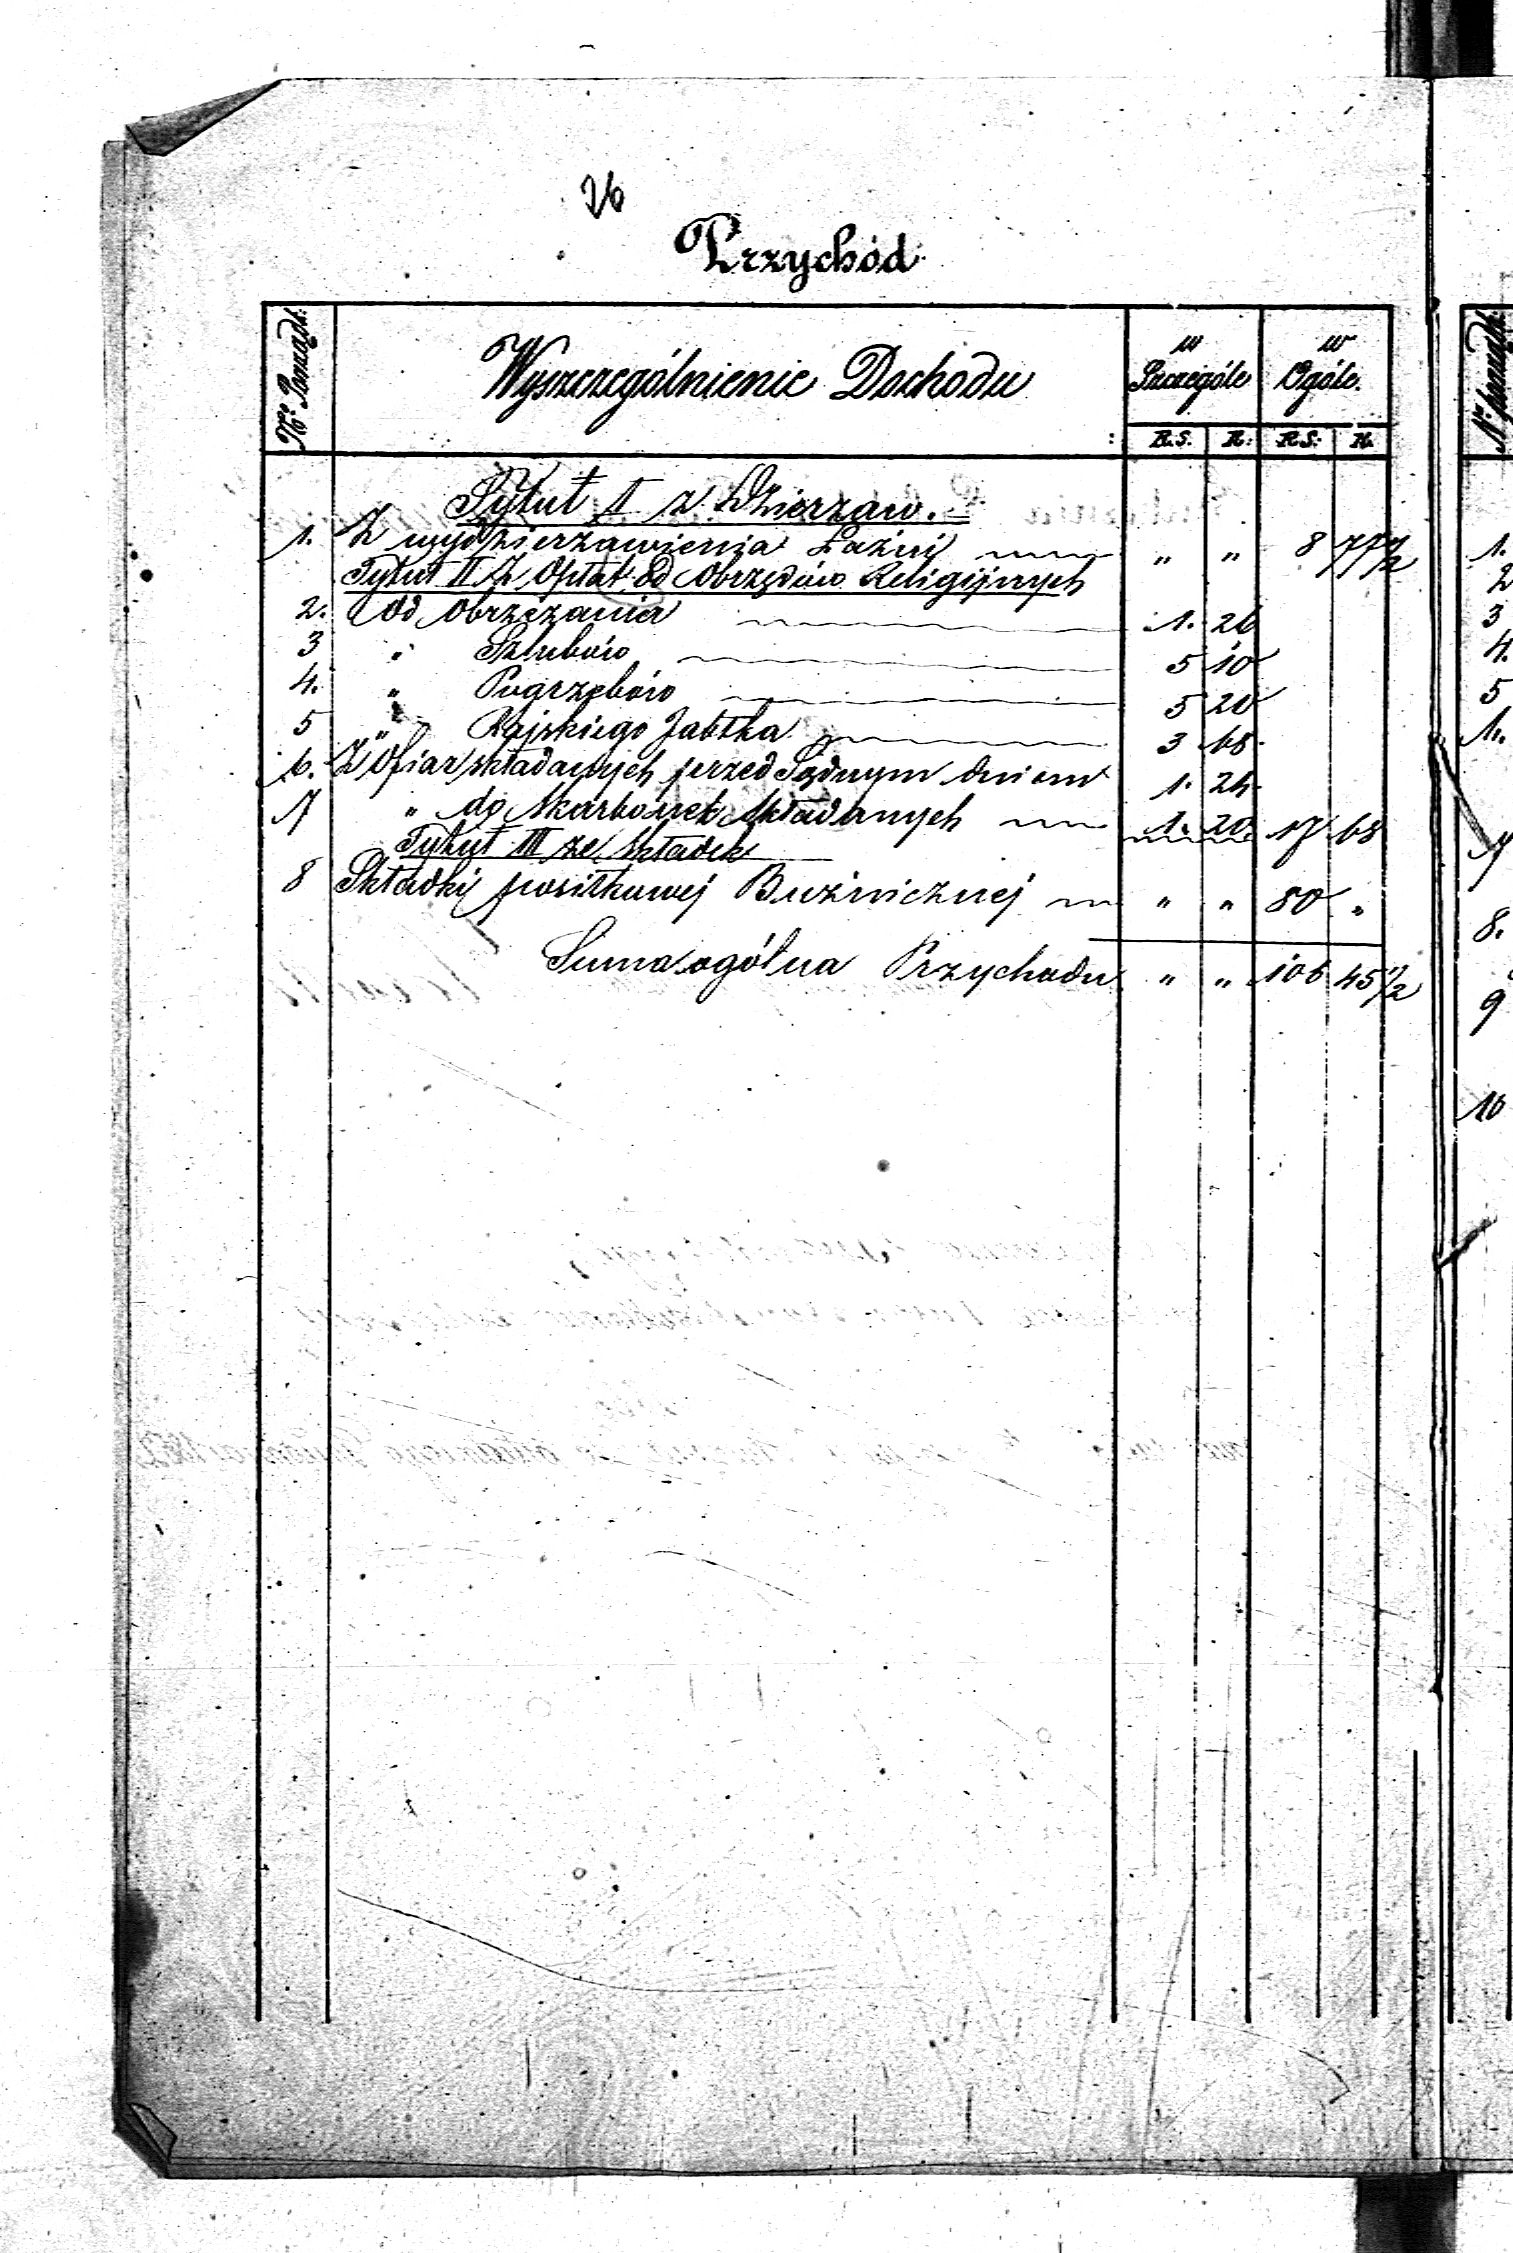 26
Przychód
No Porządk. Wyszczególnienie Dochodu w Szczególe w Ogóle.
R.S. K. R.S. K.
Tytuł I z Dzierzaw.
1. Z wydzierzawienia Łaźni " " 8 77 1/2
Tytuł II Z Opłat Od Obrzędów Religijnych
2. Od Obrzezania 1. 26
3 " Szlubów 5 10
4. " Pogrzebów 5 20
5 " Rajskiego Jabłka 3 68
6. Z Ofiar składanych przed Sądnym dniem 1. 24
7 " do Skarbonek Składanych 1. 20. 17 68
Tytuł III ze Składek
8 Składki posiłkowej Buźnicznej " " 80 "
Suma ogólna Przychodu " " 106 45 1/2
No porządk.
1.
2
3
4.
5
1.
7
8.
9
10